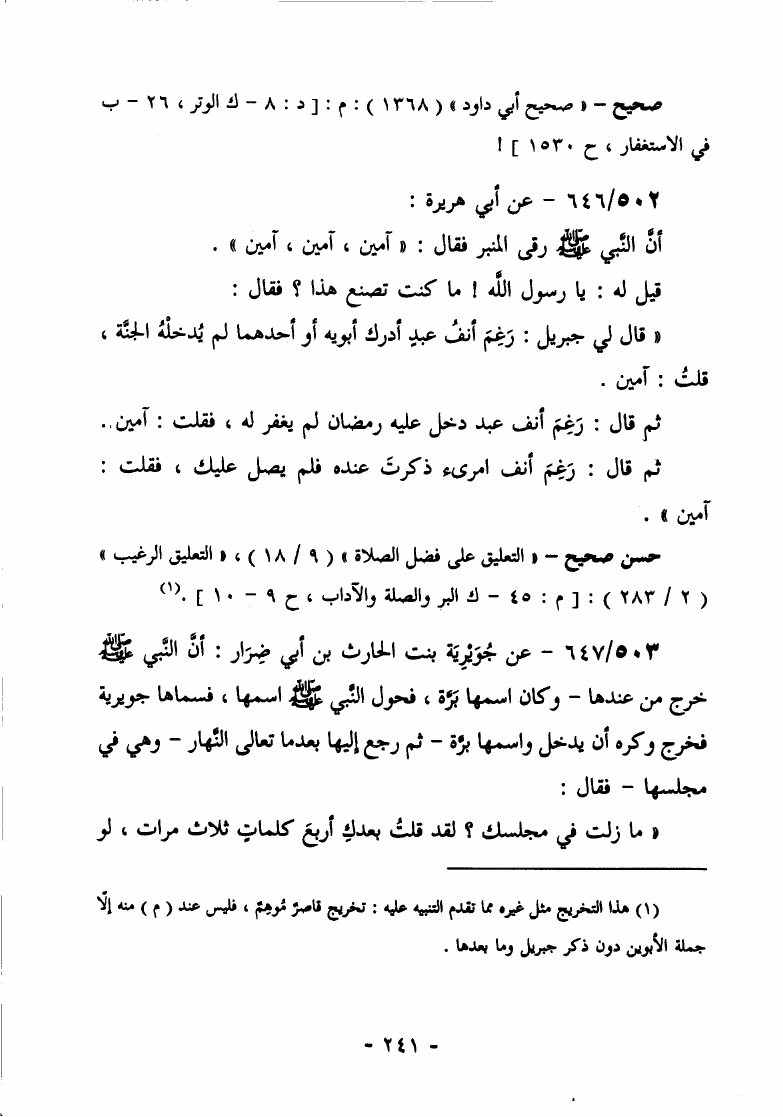 صحيح – « صحيح أبي داود » ( ١٣٦٨ ) : م : [ د : ٨ – ك الوتر ، ٢٦ – ب
في الاستغفار ، ح ١٥٣٠ ] !
٦٤٦/٥٠٢ – عن أبي هريرة :
أنَّ النَّبي ﷺ رقى المنبر فقال : « آمين ، آمين ، آمين » .
قيل له : يا رسول اللَّه ! ما كنت تصنع هذا ؟ فقال :
« قال لي جبريل : رَغِمَ أنفُ عبدٍ أدرك أبويه أو أحدهما لم يُدخلْهُ الجنَّة ،
قلتُ : آمين .
ثم قال : رَغِمَ أنف عبد دخل عليه رمضان لم يغفر له ، فقلت : آمين..
ثم قال : رَغِمَ أنف امرىء ذكرتَ عنده فلم يصل عليك ، فقلت :
آمين » .
حسن صحيح – « التعليق على فضل الصلاة » ( ٩ / ١٨ ) ، « التعليق الرغيب »
( ٢ / ٢٨٣ ) : [ م : ٤٥ – ك البر والصلة والآداب ، ح ٩ – ١٠ ] .(١)
٦٤٧/٥٠٣ – عن جُوَيْرِيَة بنت الحارث بن أبي ضِرَار : أنَّ النَّبي ﷺ
خرج من عندها – وكان اسمها بَرَّة ، فحول النَّبي ﷺ اسمها ، فسماها جويرية
فخرج وكره أن يدخل واسمها برَّة – ثم رجع إليها بعدما تعالى النَّهار – وهي في
مجلسها – فقال :
« ما زلت في مجلسك ؟ لقد قلتُ بعدكِ أربعَ كلماتٍ ثلاث مرات ، لو
(١) هذا التخريج مثل غيره مما تقدم التنبيه عليه : تخريج قاصرٌ مُوهِمٌ ، فليس عند ( م ) منه إلَّا
جملة الأبوين دون ذكر جبريل وما بعدها .
- ٢٤١ -